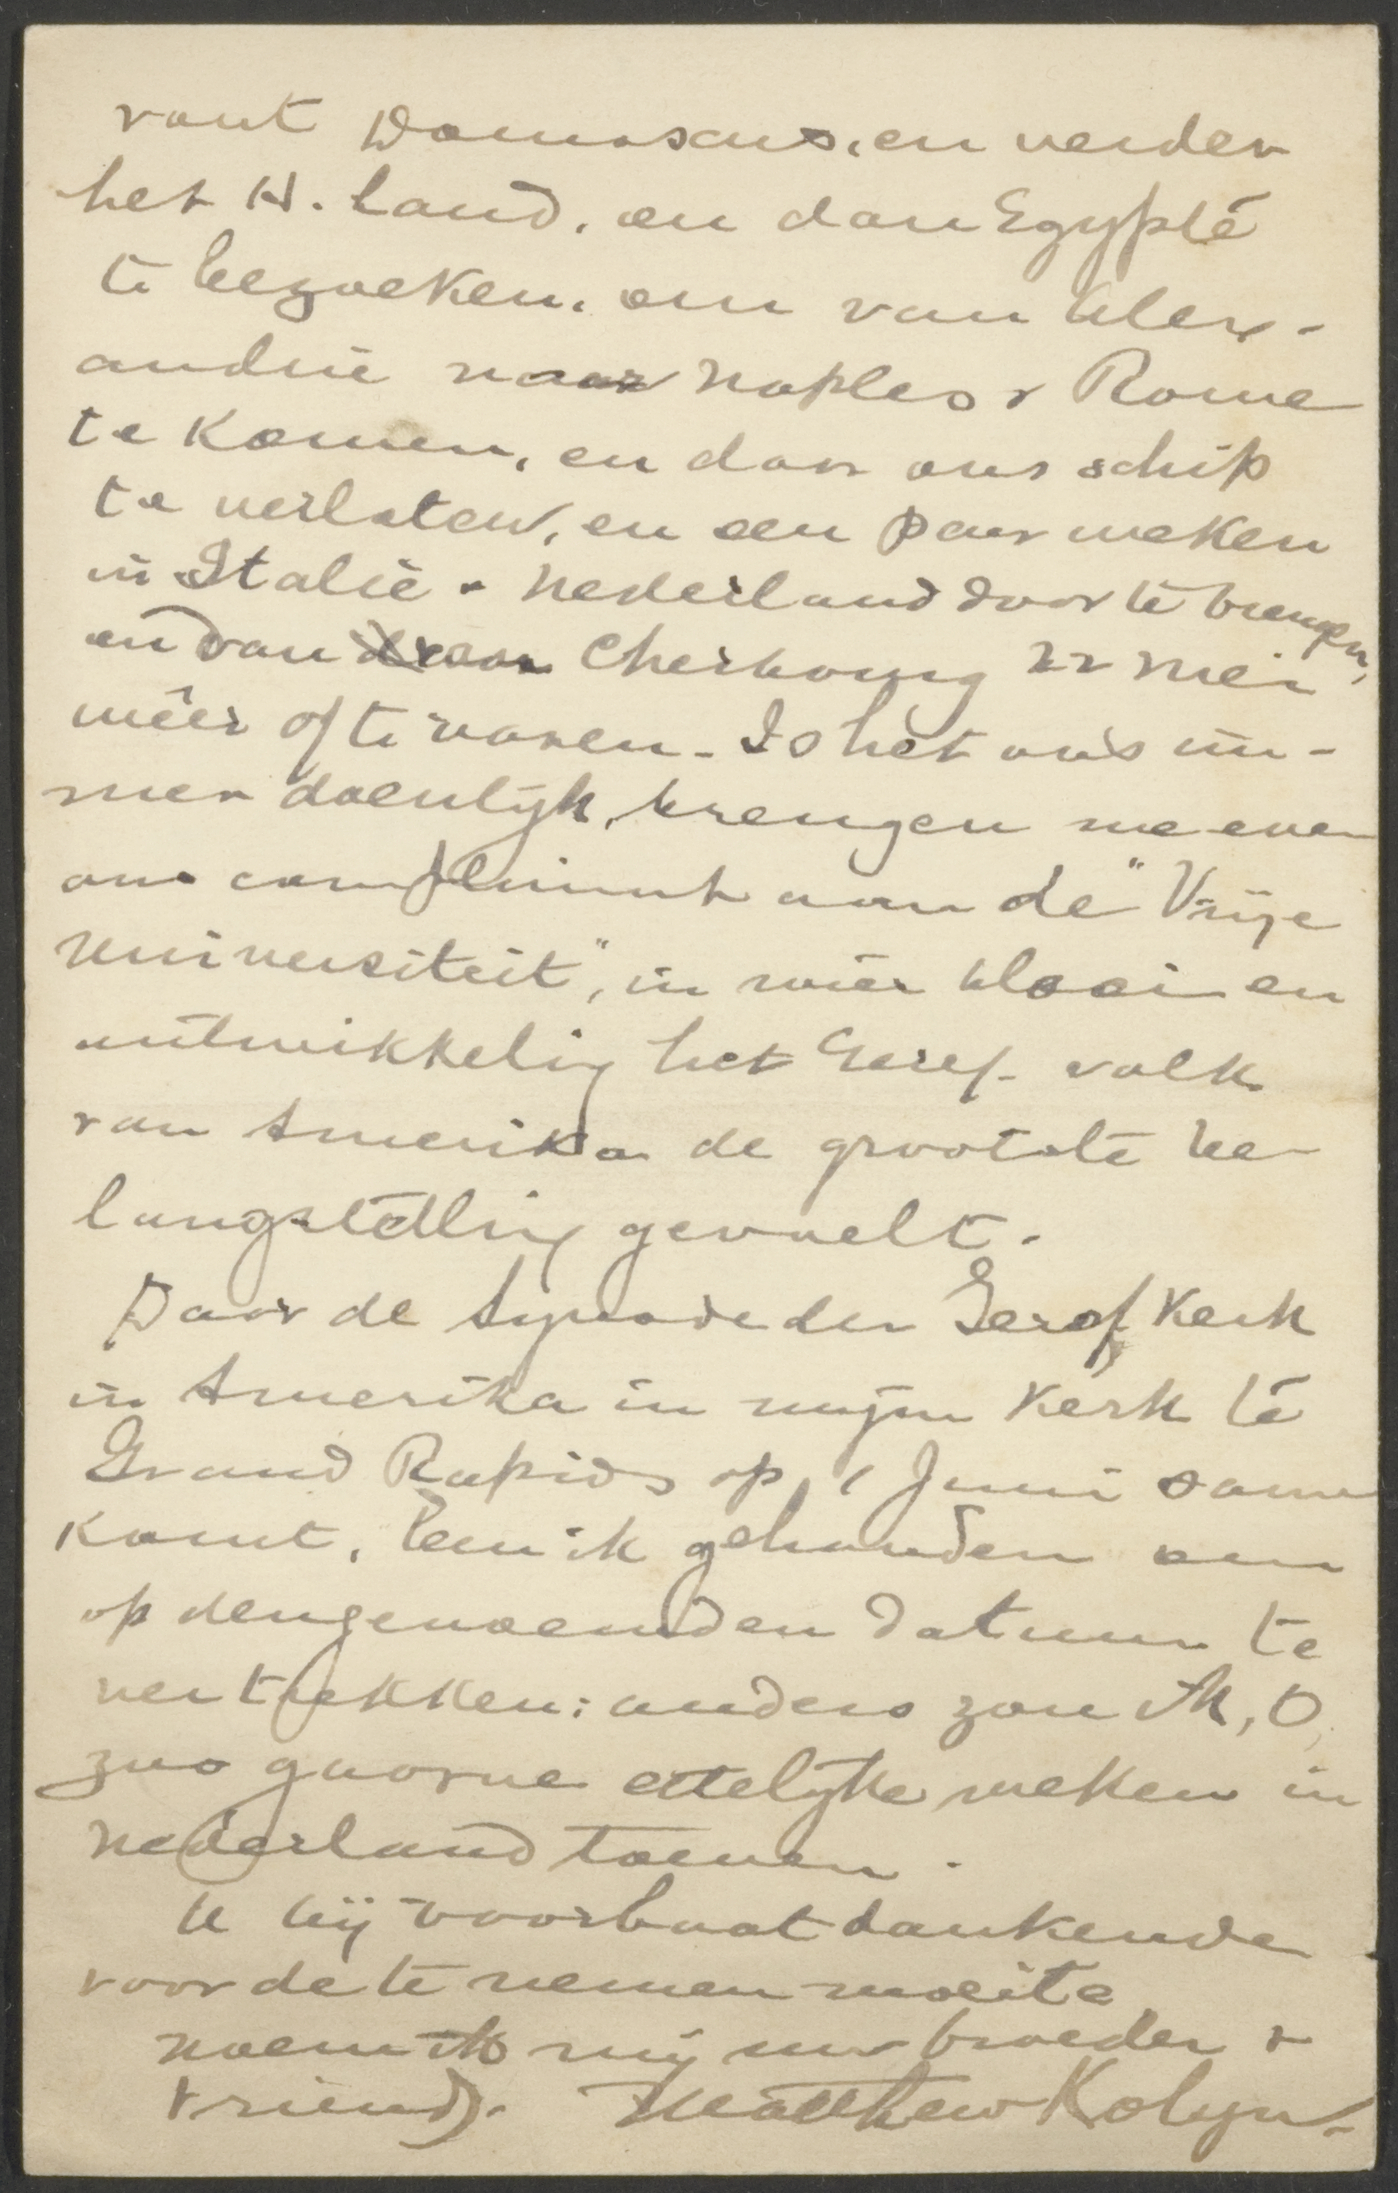 vaut Damascus, en verder
het H. Land, en dan Egypte
te bezoeken, om van Alex-
andrië naar Naples & Rome
te komen, en daar ons schip
te verlaten, en een paar weken
in Italië & Nederland door te brengen,
en van Cherbourg 22 Mei
wêer af te varen. Is het ons im-
mer doenlijk, brengen we even
ons compliment aan de "Vrije
Universiteit", in wier bloei en
ontwikkelig het Geref. volk
van Amerika de grootste be-
langstellig gevoelt.
Daar de Synode der Geref Kerk
in Amerika in mijne Kerk te
Grand Rapids op 1 Juni same
komt, ben ik gehouden om
op den genoemden datum te
vertrekken; anders zou ik, O,
zoo gaarne ettelijke weken in
Nederland toeven.
U bij voorbaat dankende
voor de te nemen moeite
noem ik mij uw broeder &
vriend. Matthew Kolyn.